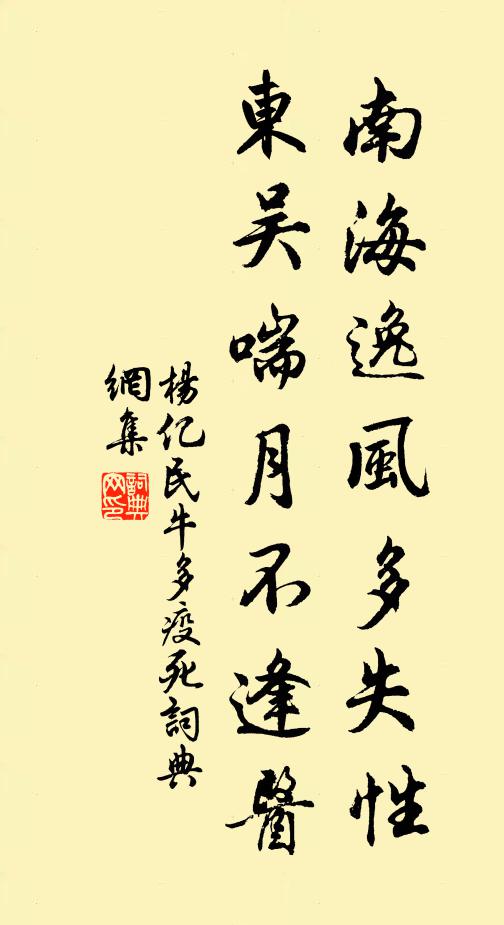 南海逸風多失性
東吴喘月不逢醫
楊亿民牛多疫死詞典
網集
詞典
网印